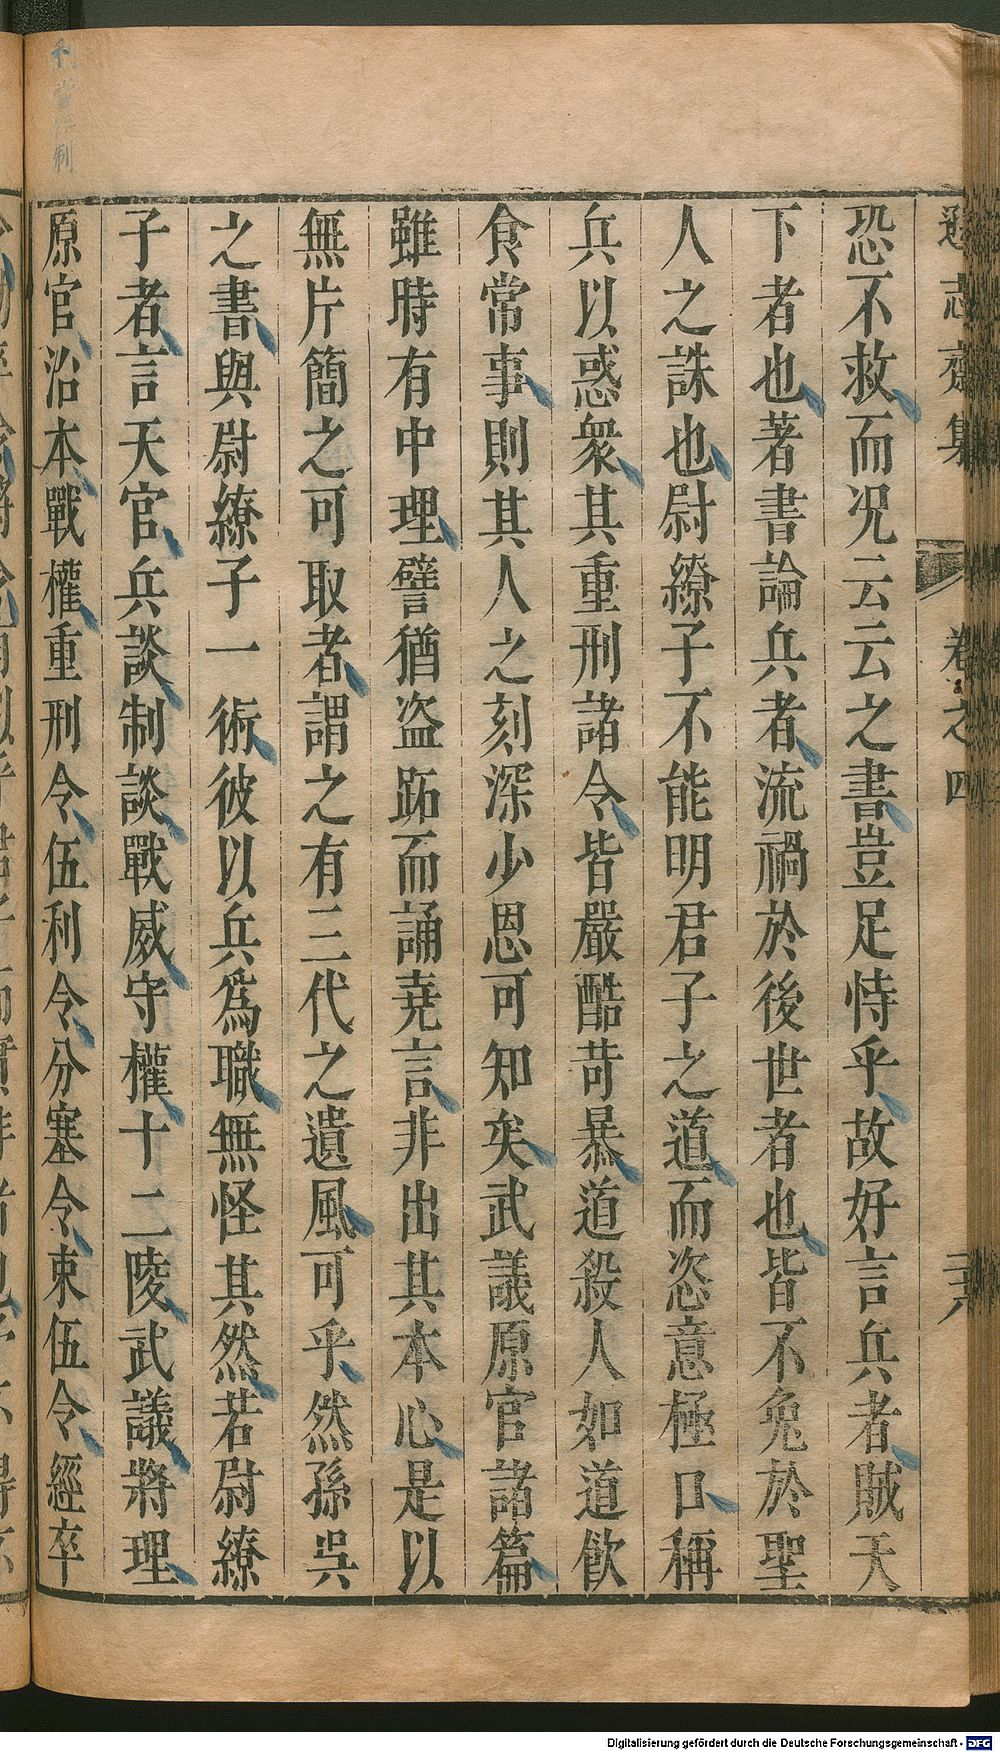 遜志齋集 卷之四
恐不救而况云云之書豈足恃乎故好言兵者賊天
下者也著書論兵者流禍於後世者也皆不免於聖
人之誅也尉繚子不能明君子之道而恣意極口稱
兵以惑衆其重刑諸令皆嚴酷苛暴道殺人如道飲
食常事則其人之刻深少恩可知矣武議原官諸篇
雖時有中理譬猶盗跖而誦堯言非出其本心是以
無片簡之可取者謂之有三代之遺風可乎然孫吳
之書與尉繚子一術彼以兵爲職無怪其然若尉繚
子者言天官兵談制談戰威守權十二陵武議將理
原官治本戰權重刑令伍利令分塞令束伍令經卒
Digitalisierung gefördert durch die Deutsche Forschungsgemeinschaft - DFG